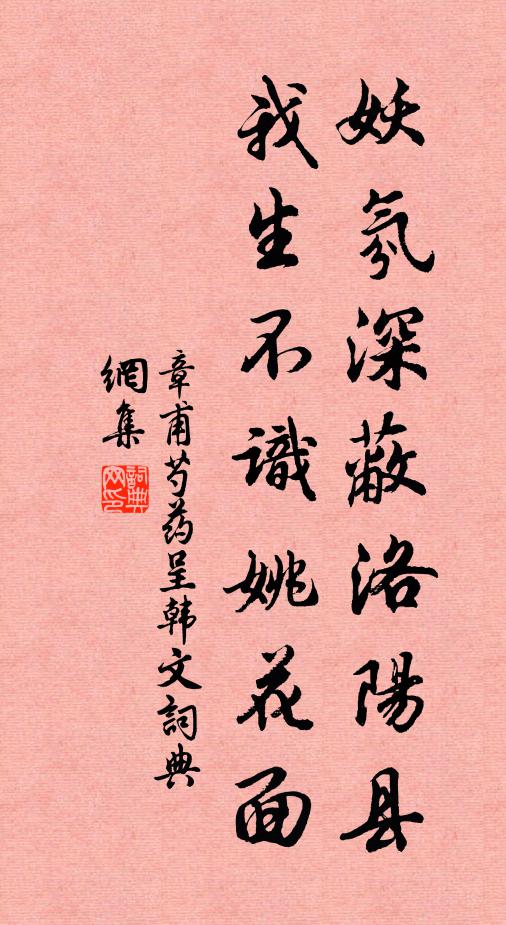 妖氛深蔽洛陽县
我生不識姚花面
章甫芍药呈韩文詞典
網集
詞典网印